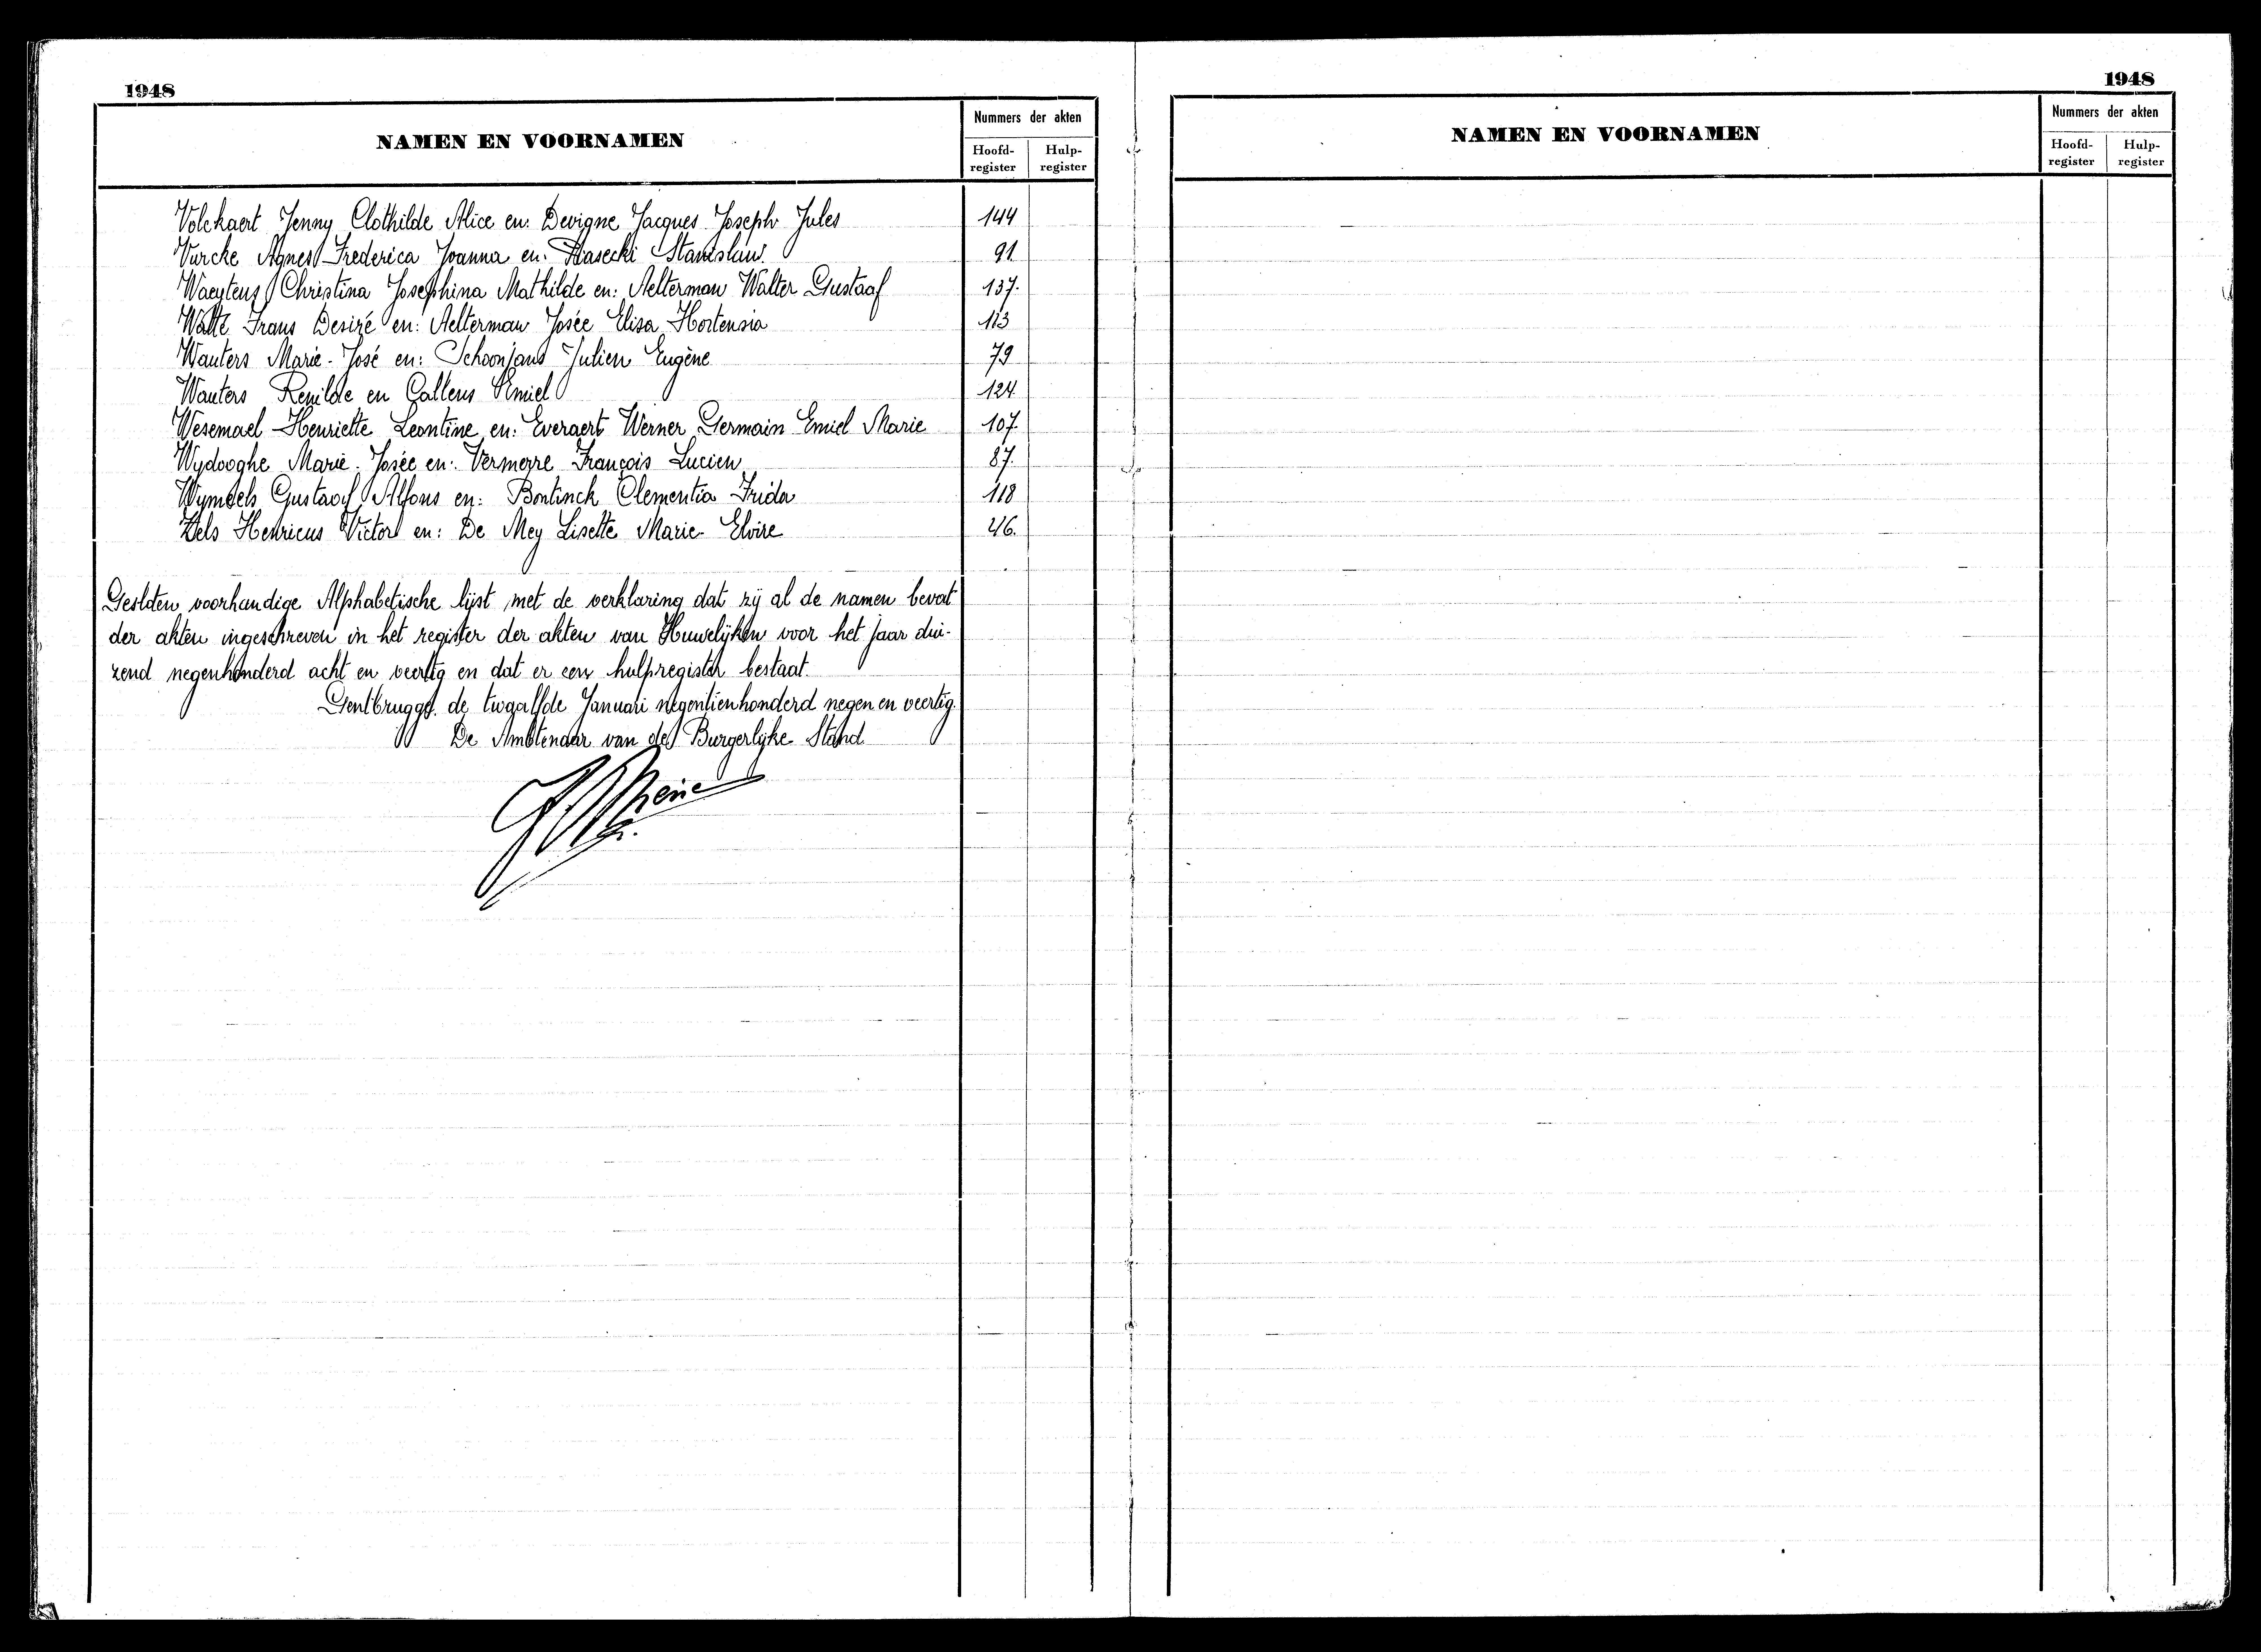 1948
NAMEN EN VOORNAMEN
Nummers der akten
Hoofd-register
Hulp-register
Volckaert Jenny Clothilde Alice en: Devigne Jacques Joseph Jules 144
Vurcke Agnes Frederica Joanna en: Piasecki Stanislaw. 91
Waeytens Christina Josephina Mathilde en: Aelterman Walter Gustaaf 137.
Watté Frans Desiré en: Aelterman Josée Elisa Hortensia 113
Wauters Marie-José en: Schoonjans Julien Eugène 79
Wauters Renilde en Callens Emiel 124.
Wesemael Henriette Leontine en: Everaert Werner Germain Emiel Marie 107.
Wydooghe Marie-Josée en: Vermerre François Lucien 87.
Gustaaf Alfons en: Bontinck Clementia Frida 118
Zels Henricus Victor en: De Mey Lisette Marie Elvire 46.
Gesloten voorhandige Alphabetische lijst, met de verklaring dat zij al de namen bevat
der akten ingeschreven in het register der akten van Huwelijken voor het jaar dui-
zend negenhonderd acht en veertig en dat er een hulpregister bestaat.
Gentbrugge, de twaalfde Januari negentienhonderd negen en veertig.
De Ambtenaar van de Burgerlijke Stand
1948
NAMEN EN VOORNAMEN
Nummers der akten
Hoofd-register
Hulp-register